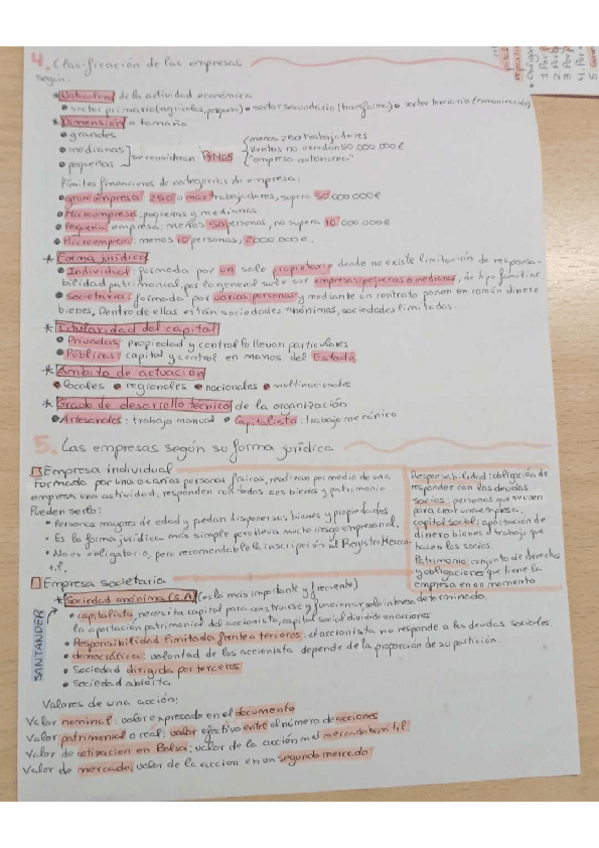 4. Clasificación de las empresas
según:
* Naturaleza de la actividad económica
• sector primario (agrícolas, pesquero) • sector secundario (transforma) • sector terciario (comunicación)
* Dimensión o tamaño
• grandes
• medianas
• pequeñas
se consideran PYMES
menos 250 trabajadores
Ventas no excedan 50 000 000 €
"empresa autónoma"
límites financieros de categorías de empresa:
• gran empresa: 250 o más trabajadores, supera 50 000 000 €
• Microempresa: pequeñas y medianas.
• Pequeña empresa: menos 50 personas, no supera 10 000 000 €
• Microempresa: menos 10 personas, 2000.000 €.
* Forma jurídica
• Individual: formada por un solo propietario donde no existe limitación de responsa-
bilidad patrimonial, por lo general suele ser empresas pequeñas o medianas, de tipo familiar.
• Societaria: formada por varias personas y mediante un contrato ponen en común dinero
bienes. Dentro de ellas están sociedades anónimas, sociedades limitadas.
* Titularidad del capital
• Privadas: propiedad y control lo llevan particulares
• Públicas: capital y control en manos del Estado
* Ámbito de actuación
• locales • regionales • nacionales • multinacionales
* Grado de desarrollo técnico de la organización
• Artesanales: trabajo manual • Capitalista: trabajo mecánico
5. Las empresas según su forma jurídica
Empresa individual
Formada por una o varias personas físicas, realizan por medio de una
empresa una actividad, responden con todos sus bienes y patrimonio
Pueden serlo:
• Personas mayores de edad y puedan disponer sus bienes y propiedades
• Es la forma jurídica más simple pero lleva mucho riesgo empresarial.
• No es obligatorio, pero recomendable la inscripción al Registro Mercan-
til.
Responsabilidad: obligación de
responder con las deudas
Socios: personas que se unen
para crear una empresa.
capital social: aportación de
dinero bienes o trabajo que
hacen los socios.
Patrimonio: conjunto de derechos
y obligaciones que tiene la
empresa en un momento
determinado.
Empresa societaria
* Sociedad anónima (S.A) (es la más importante y frecuente)
SANTANDER
• capitalista, necesita capital para construirse y funcionar, solo interesa
la aportación patrimonial del accionista, capital social dividido en acciones
• Responsibilidad limitada frente a terceros: el accionista no responde a las deudas sociales.
• democrática: voluntad de los accionista depende de la proporción de su partición.
• Sociedad dirigida por terceros
• Sociedad abierta
Valores de una acción:
Valor nominal: valor expresado en el documento
Valor patrimonial o real: valor efectivo entre el número de acciones
Valor de cotizacion en Bolsa: valor de la acción en el mercado bursátil
Valor de mercado, valor de la accion en un segundo mercado